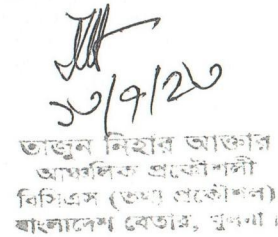 ১৩/৭/২৩
তাজুন নিহার আক্তার
আঞ্চলিক প্রকৌশলী
বিসিএস (তথ্য প্রকৌশল)
বাংলাদেশ বেতার, খুলনা।